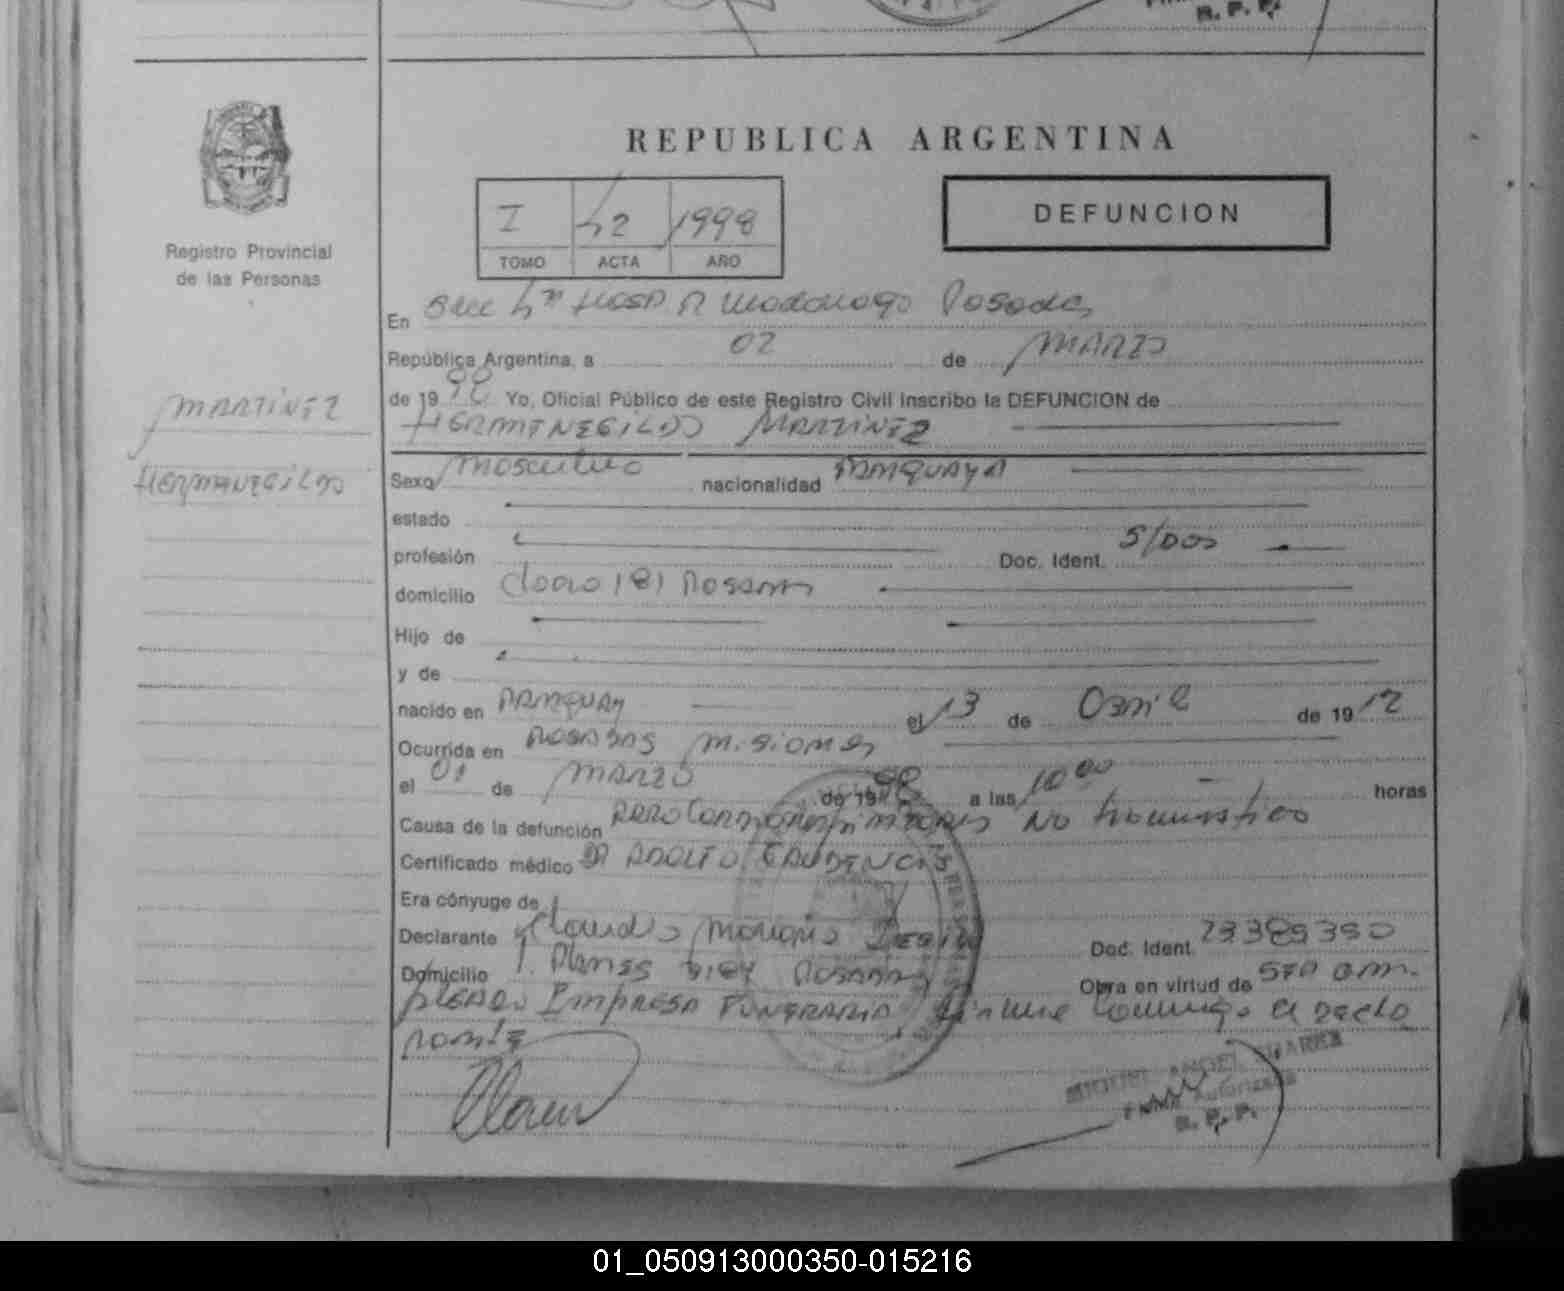 R. P. P.
REPUBLICA ARGENTINA
I 42 1998
TOMO ACTA AÑO
DEFUNCION
Registro Provincial
de las Personas
En Secc 4ta Hosp R Madariaga Posadas
República Argentina, a 02 de MARZO
de 1998 Yo, Oficial Público de este Registro Civil inscribo la DEFUNCION de
HERMENEGILDO MARTINEZ
MARTINEZ
HERMENEGILDO
Sexo Masculino nacionalidad PARAGUAYA
estado
profesión Doc. Ident. S/DOC
domicilio 181 Posadas
Hijo de
y de
nacido en PARAGUAY el 13 de Abril de 1912
Ocurrida en POSADAS Misiones
el 01 de MARZO de 1998 a las 10 00 horas
Causa de la defunción PARO CARDIORESPIRATORIO NO traumatico
Certificado médico DR ADOLFO GAUDENCIO
Era cónyuge de
Declarante Claudio Mariano Doc. Ident. 23389390
Domicilio POSADAS Obra en virtud de
EMPRESA FUNERARIA firma conmigo el decla
rante
MIGUEL ANGEL SUAREZ
Firma Autorizada
R. P. P.
01_050913000350-015216